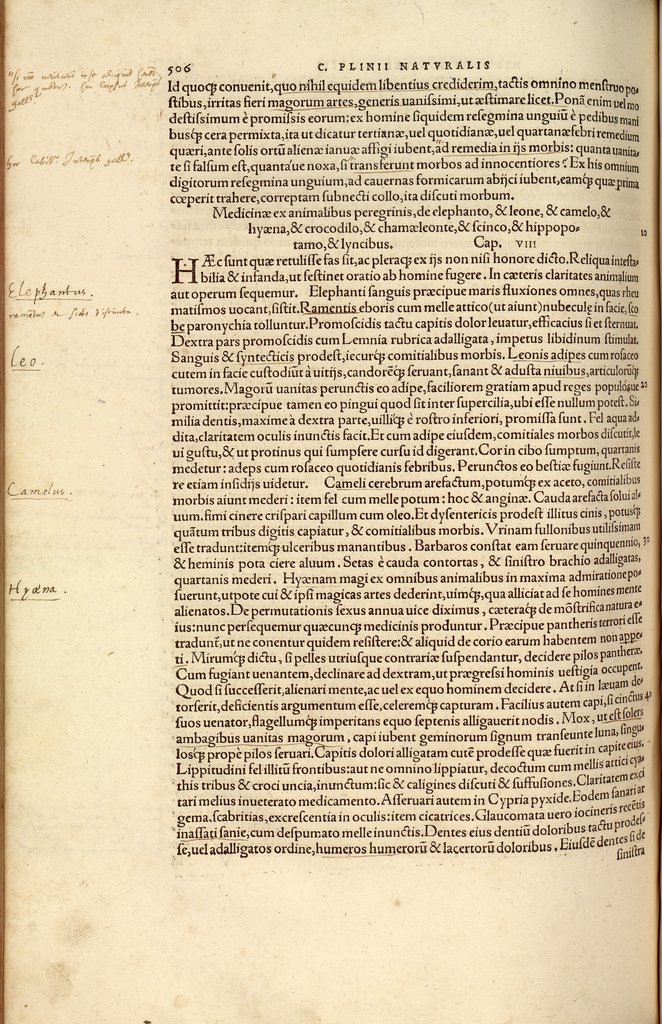 506 C. PLINII NATVRALIS
Id quoq; conuenit, quo nihil equidem libentius crediderim, tactis omnino menstruo po-
stibus, irritas fieri magorum artes, generis uanissimi, ut æstimare licet. Ponā enim uel mo
destissimum è promissis eorum: ex homine siquidem resegmina unguiū è pedibus mani
busq; cera permixta, ita ut dicatur tertianæ, uel quotidianæ, uel quartanæ febri remedium
quæri, ante solis ortū alienæ ianuæ affigi iubent, ad remedia in ijs morbis: quanta uanita-
te si falsum est, quanta'ue noxa, si transferunt morbos ad innocentiores? Ex his omnium
digitorum resegmina unguium, ad cauernas formicarum abijci iubent, eamq; quæ prima
cœperit trahere, correptam subnecti collo, ita discuti morbum.
Medicinæ ex animalibus peregrinis, de elephanto, & leone, & camelo, &
hyæna, & crocodilo, & chamæleonte, & scinco, & hippopo-
tamo, & lyncibus. Cap. VIII
10
HÆc sunt quæ retulisse fas sit, ac pleraq; ex ijs non nisi honore dicto. Reliqua intesta-
bilia & infanda, ut festinet oratio ab homine fugere. In cæteris claritates animalium
aut operum sequemur. Elephanti sanguis præcipue maris fluxiones omnes, quas rheu
Elephantus.
matismos uocant, sistit. Ramentis eboris cum melle attico (ut aiunt) nubeculę in facie, sco
be paronychia tolluntur. Promoscidis tactu capitis dolor leuatur, efficacius si et sternuat.
Dextra pars promoscidis cum Lemnia rubrica adalligata, impetus libidinum stimulat.
Sanguis & syntecticis prodest, iecurq; comitialibus morbis. Leonis adipes cum rosaceo
Leo.
cutem in facie custodiūt à uitijs, candorēq; seruant, sanant & adusta niuibus, articulorūq;
tumores. Magorū uanitas perunctis eo adipe, faciliorem gratiam apud reges populosue 20
promittit: præcipue tamen eo pingui quod sit inter supercilia, ubi esse nullum potest. Si-
milia dentis, maxime à dextra parte, uilliq; è rostro inferiori, promissa sunt. Fel aqua ad-
dita, claritatem oculis inunctis facit. Et cum adipe eiusdem, comitiales morbos discutit, le
ui gustu, & ut protinus qui sumpsere cursu id digerant. Cor in cibo sumptum, quartanis
medetur: adeps cum rosaceo quotidianis febribus. Perunctos eo bestiæ fugiunt. Resiste
re etiam insidijs uidetur. Cameli cerebrum arefactum, potumq; ex aceto, comitialibus
Camelus.
morbis aiunt mederi: item fel cum melle potum: hoc & anginæ. Cauda arefacta solui al-
uum. fimi cinere crispari capillum cum oleo. Et dysentericis prodest illitus cinis, potusq;
quātum tribus digitis capiatur, & comitialibus morbis. Vrinam fullonibus utilissimam
esse tradunt: itemq; ulceribus manantibus. Barbaros constat eam seruare quinquennio, 30
& heminis pota ciere aluum. Setas è cauda contortas, & sinistro brachio adalligatas,
quartanis mederi. Hyænam magi ex omnibus animalibus in maxima admiratione po-
Hyæna.
suerunt, utpote cui & ipsi magicas artes dederint, uimq;, qua alliciat ad se homines mente
alienatos. De permutationis sexus annua uice diximus, cæteraq; de mōstrifica natura e-
ius: nunc persequemur quæcunq; medicinis produntur. Præcipue pantheris terrori esse
tradunt, ut ne conentur quidem resistere: & aliquid de corio earum habentem non appe-
ti. Mirumq; dictu, si pelles utriusque contrariæ suspendantur, decidere pilos pantheræ.
Cum fugiant uenantem, declinare ad dextram, ut prægressi hominis uestigia occupent.
Quod si successerit, alienari mente, ac uel ex equo hominem decidere. At si in læuam de-
torserit, deficientis argumentum esse, celeremq; capturam. Facilius autem capi, si cinctus 40
suos uenator, flagellumq; imperitans equo septenis alligauerit nodis. Mox, ut est solers
ambagibus uanitas magorum, capi iubent geminorum signum transeunte luna, singu-
losq; propè pilos seruari. Capitis dolori alligatam cutē prodesse quæ fuerit in capite eius.
Lippitudini fel illitū frontibus: aut ne omnino lippiatur, decoctum cum mellis attici cya-
this tribus & croci uncia, inunctum: sic & caligines discuti & suffusiones. Claritatem exci
tari melius inueterato medicamento. Asseruari autem in Cypria pyxide. Eodem sanari ar
gema, scabritias, excrescentia in oculis: item cicatrices. Glaucomata uero iocineris recētis
inassati sanie, cum despumato melle inunctis. Dentes eius dentiū doloribus tactu prodes-
se, uel adalligatos ordine, humeros humerorū & lacertorū doloribus. Eiusdē dentes si de
sinistra